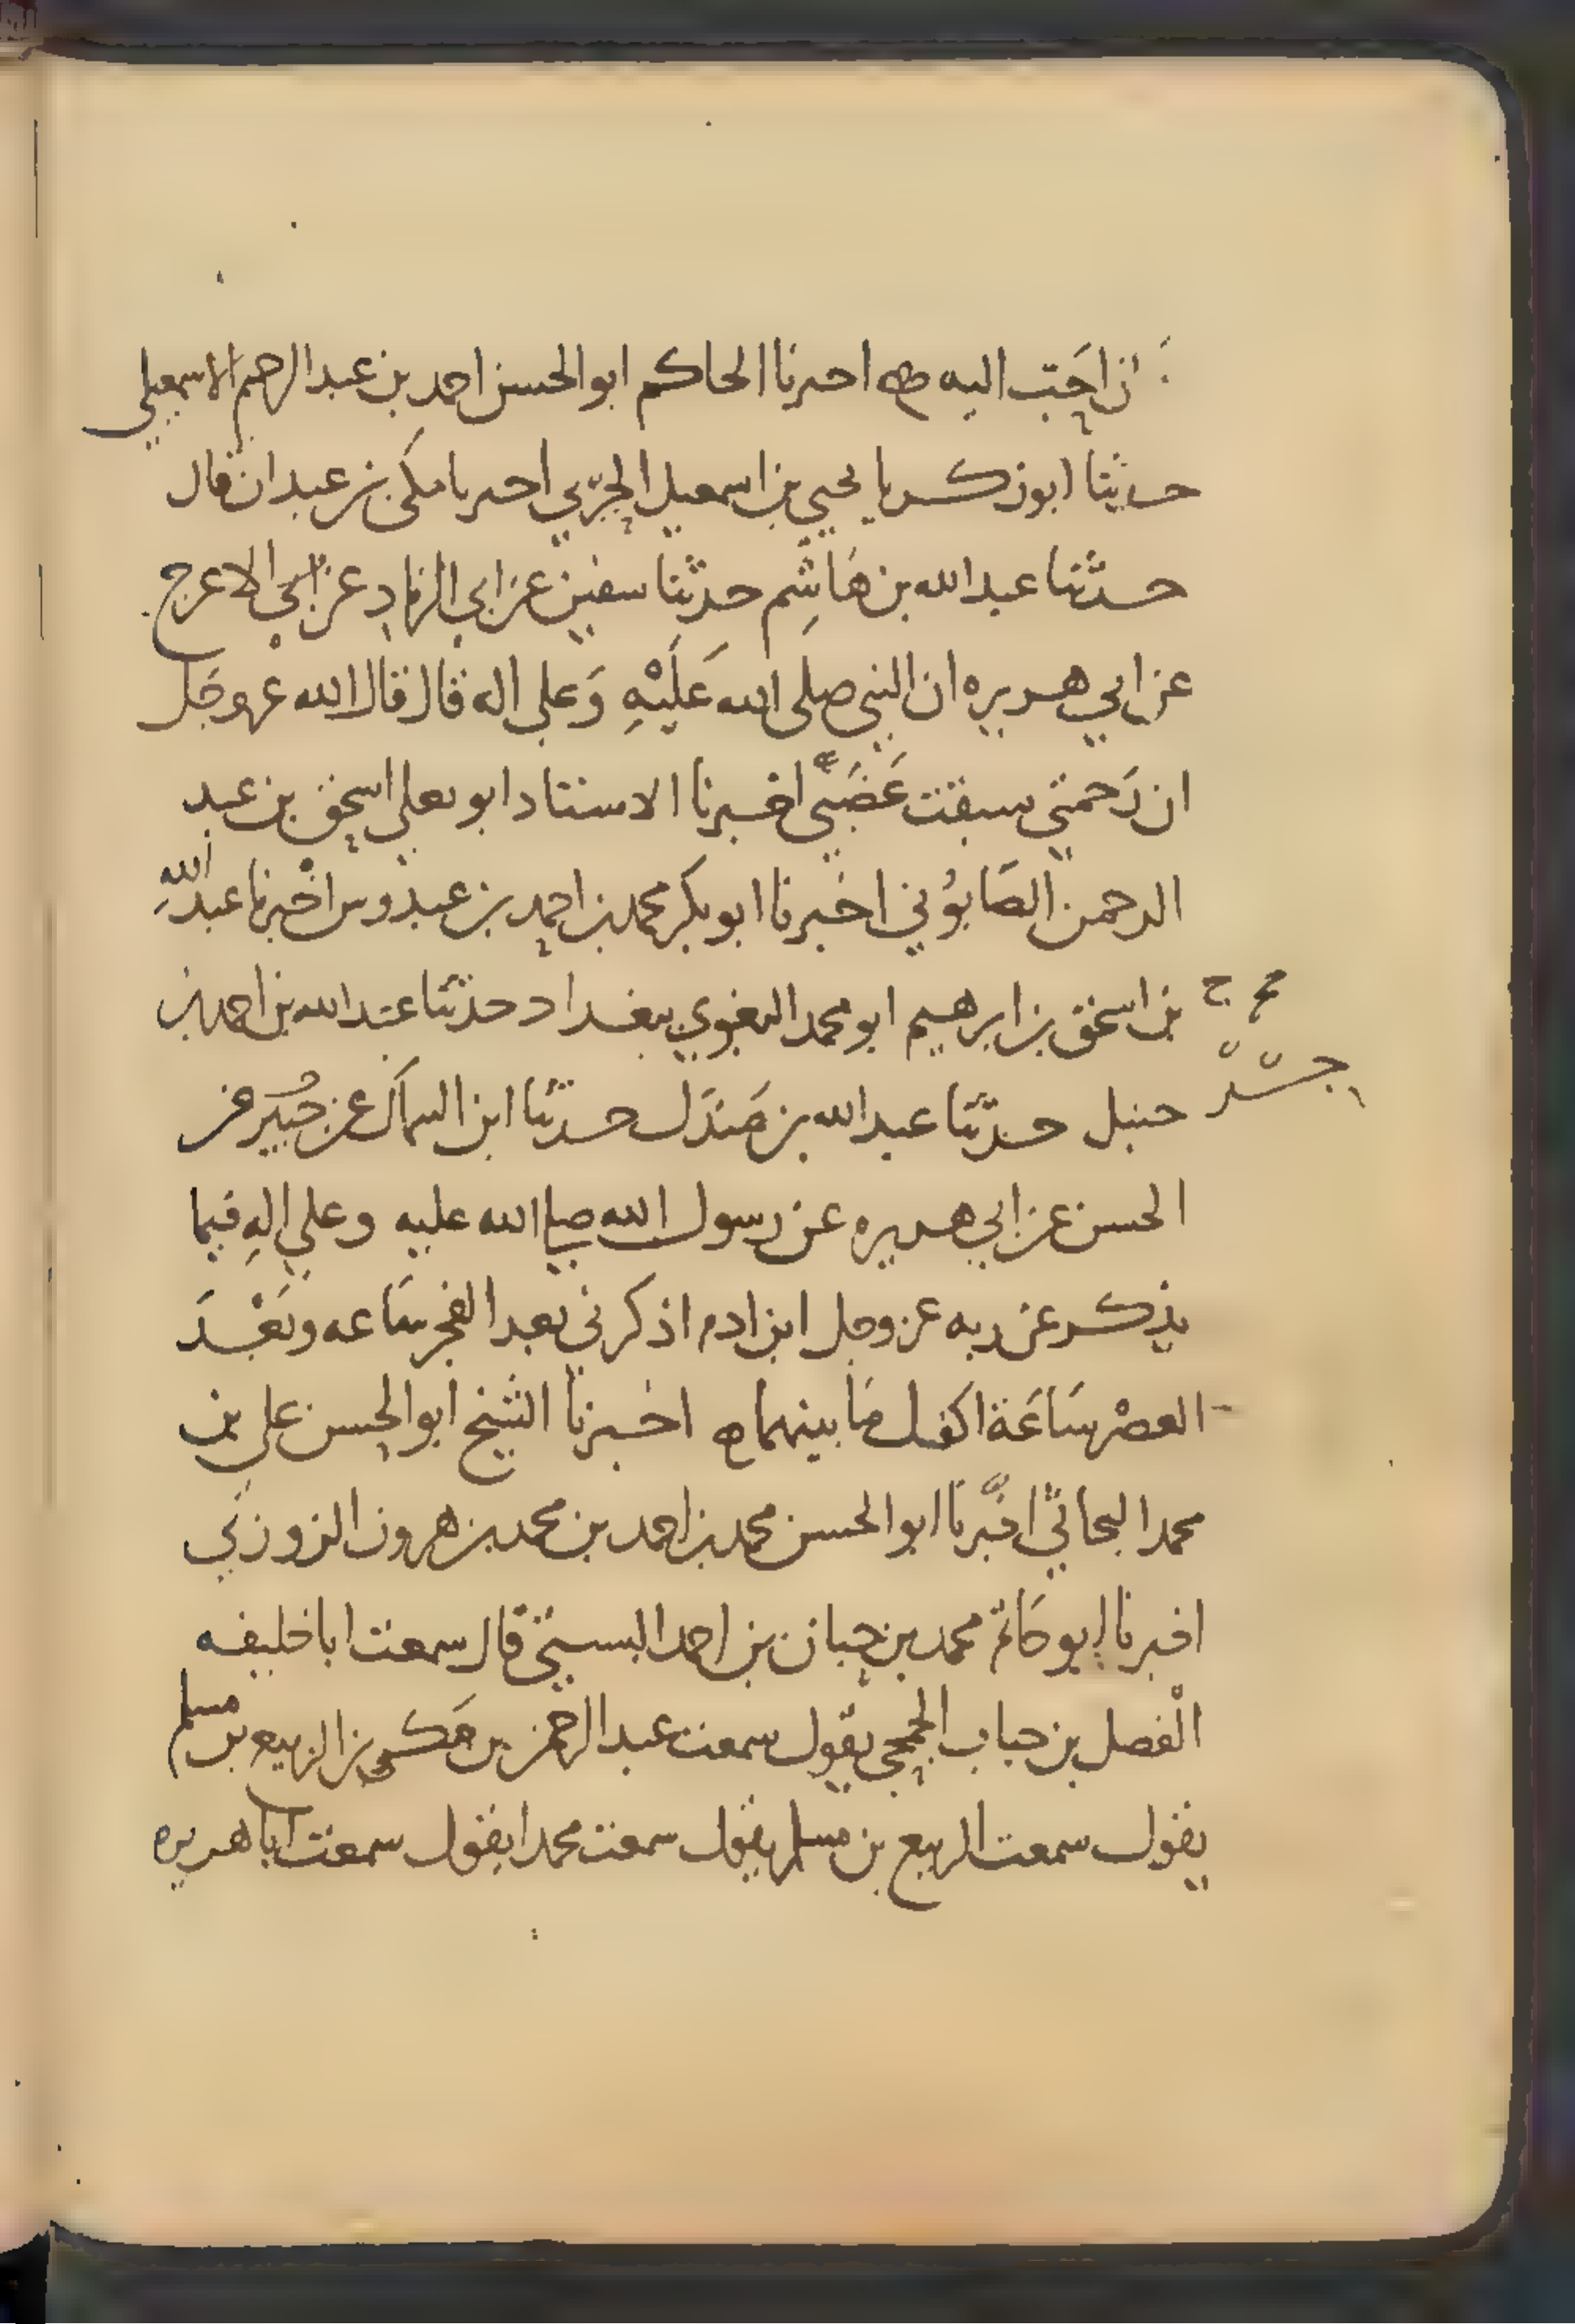 ان احب اليه احبرنا الحاكم ابو الحسن احمد بن عبد الرحيم الاسمعيلي
حدثنا ابو زكريا يحيي بن اسمعيل الحربي احبرنا مكي بن عبدان قال
حدثنا عبد الله بن هَاشِم حدثنا سفين عن ابي الزناد عن ابي الاعرج
عن ابي هريره ان النبي صلى الله عَلَيْهِ وَعلي اله قال قال الله عز وجل
ان رَحمتي سبقت غَضَبي اخبرنا الاستاد ابو يعلي اسحق بن عبد
الرحمن الصَابُوني اخبرنا ابو بكر محمد بن احمد بن عبدوس اخبرنا عبد اللهِ
بن اسحق بن ابرهيم ابو محمد البغوي ببغداد حدثنا عبد الله بن احمد بن
حنبل حدثنا عبد الله بن صَندَل حدثنا ابن السماك عن جبير عن
الحسن عن ابي هريره عن رسول الله صلى الله عليه وعلي الهِ فيما
يذكر عن ربه عز وجل ابن ادم اذكرني بعد الفجر سَاعه وبَعْدَ
العصْر سَاعَة اكفل مَا بينهما اخبرنا الشيخ ابو الحسن علي بن
محمد البحاثي اخبرنا ابو الحسن محمد بن احمد بن محمد بن هرون الزوزني
اخبرنا ابو حَاتم محمد بن حبان بن احمد البستي قال سمعت ابا خليفه
الْفضل بن حباب الجمحي يقول سمعت عبد الرحمن بن بكر بن الربيع بن مسلم
يقول سمعت الربيع بن مسلم يقول سمعت محمدا يقول سمعت ابا هريره